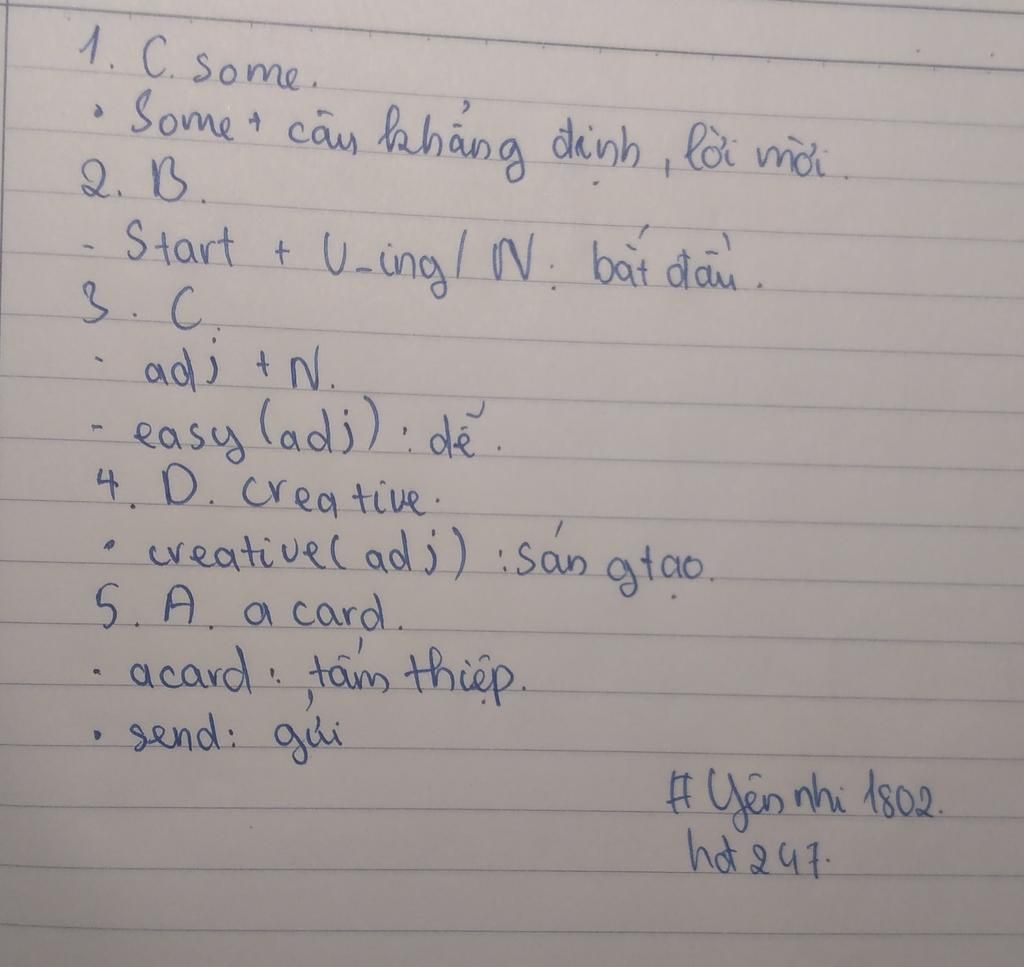 1. C. some.
• Some + câu khẳng định, lời mời.
2. B.
- Start + V-ing/ N: bắt đầu.
3. C.
- adj + N.
- easy (adj): dễ.
4. D. creative.
• creative (adj): sáng tạo.
5. A. a card.
- a card: tấm thiệp.
• send: gửi
# Yến nhi 1802.
hd 247.